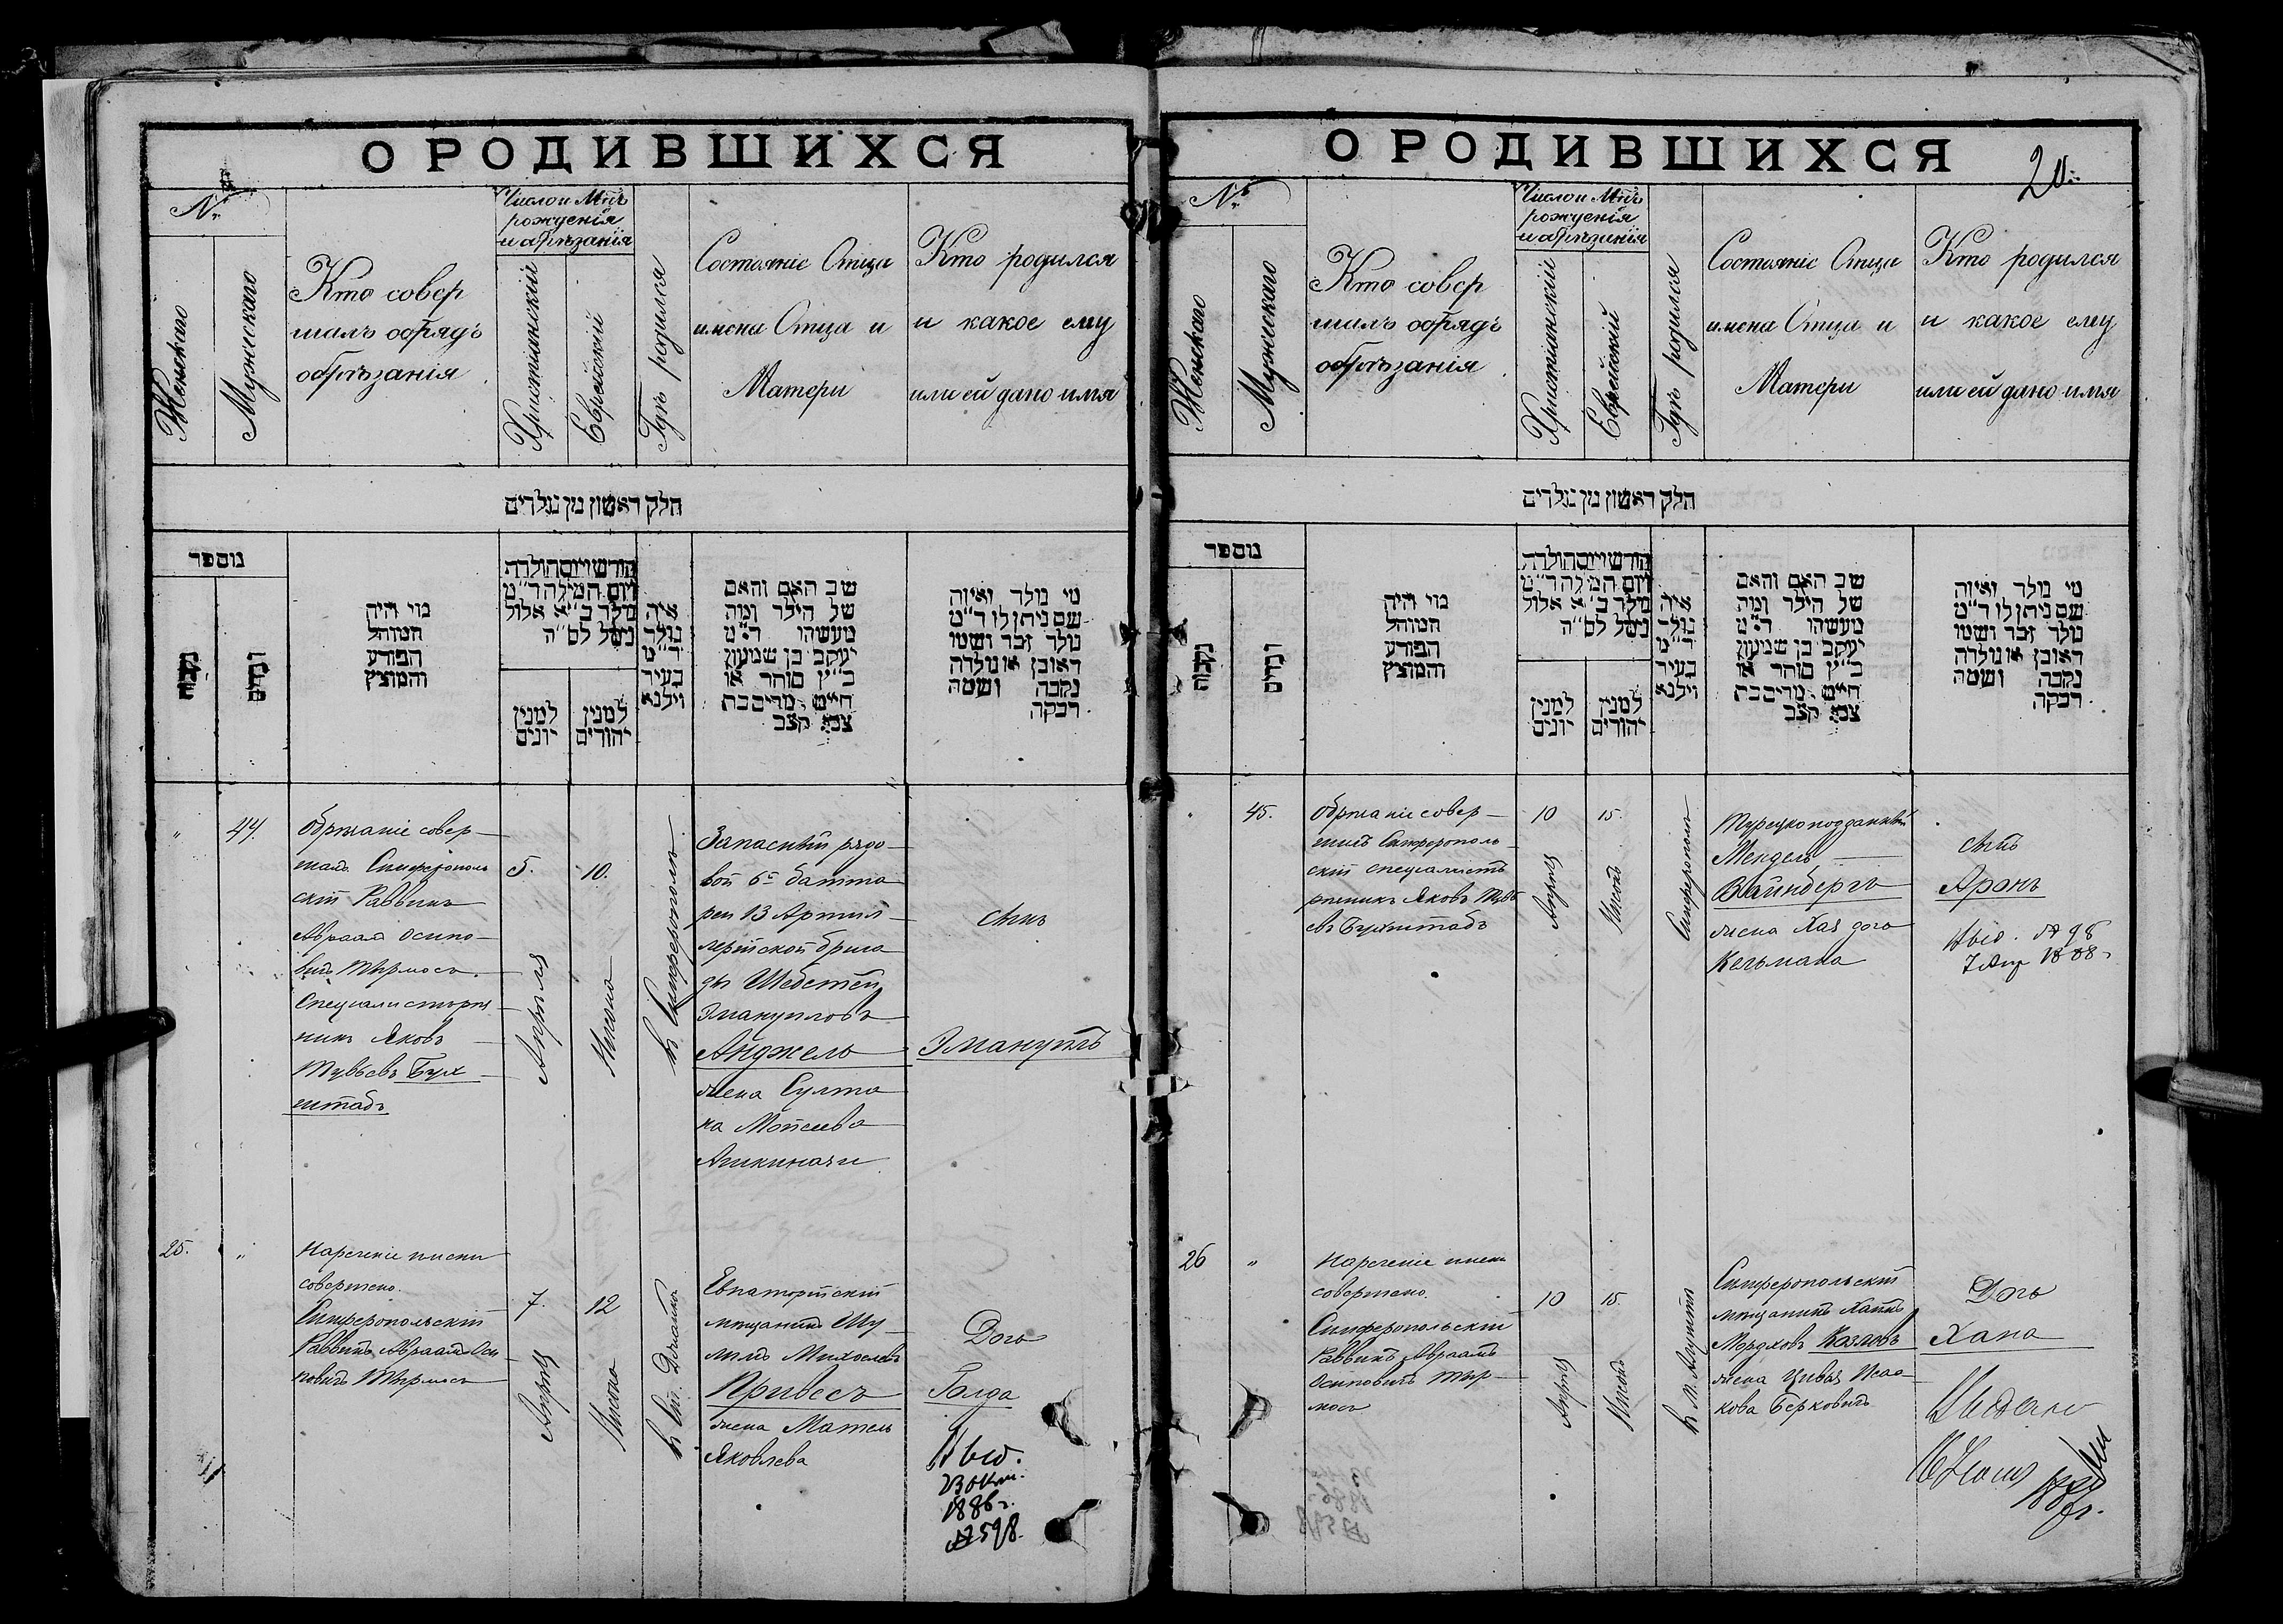 О РОДИВШИХСЯ
№
Женскаго
Мужескаго
Кто совер
шалъ обрядъ
обрѣзанія
Число и Мѣцъ
рожденія
и обрѣзанія
Христіанскій
Еврейскій
Гдѣ родился
Состояніе Отца
имена Отца и
Матери
Кто родился
и какое ему
или ей дано имя
חלק ראשון מן נולדים
מספר
נקבות
זכרים
מי היה
המוהל
הפורע
והמוצץ
חודש ויום הולדת
ויום המילה ד״מ
נולד ב״א אלול
נימל לס״ה
למנין
יונים
למנין
יהודים
איה
נולד
ד״מ
בעיר
וילנא
שב האם והאם
של הילד ומה
מעשהו ד״מ
יעקב בן שמעון
כ״ץ סוחר או
חיים מרים בת
צבי קצב
מי נולד ואיזה
שם ניתן לו ד״מ
נולד זכר ושמו
ראובן או נולדה
נקבה ושמה
רבקה
"
44.
Обрѣзаніе совер-
шалъ Симферополь
скій Раввинъ
Авраамъ Осипо-
вичъ Тырмосъ.
Спеціалистъ рѣз
никъ Яковъ
Тувьевъ Бух
штабъ
5.
Апрѣля
10.
Нисона
въ Симферополѣ
Запасный рядо-
вой 6й батта
реи 13 Артил-
лерійской брига
ды Шебетей
Эмануиловъ
Анджель
жена Султа
на Мойсеева
Ашкинази
Сынъ
Эмануилъ
25.
"
Нареченіе имени
совершено.
Симферопольскій
Раввинъ Авраамъ Оси
повичъ Тырмосъ
7.
Апрѣля
12
Нисона
Евпаторійскій
мѣщанинъ Шу-
лимъ Михелевъ
Привесъ
жена Матель
Яковлева
Дочь
Голда
Выд.
23 Окт.
1886 г.
№ 598.
О РОДИВШИХСЯ
20.
№
Женскаго
Мужескаго
Кто совер
шалъ обрядъ
обрѣзанія
Число и Мѣцъ
рожденія
и обрѣзанія
Христіанскій
Еврейскій
Гдѣ родился
Состояніе Отца
имена Отца и
Матери
Кто родился
и какое ему
или ей дано имя
חלק ראשון מן נולדים
מספר
נקבות
זכרים
מי היה
המוהל
הפורע
והמוצץ
חודש ויום הולדת
ויום המילה ד״מ
נולד ב״א אלול
נימל לס״ה
למנין
יונים
למנין
יהודים
איה
נולד
ד״מ
בעיר
וילנא
שב האם והאם
של הילד ומה
מעשהו ד״מ
יעקב בן שמעון
כ״ץ סוחר או
חיים מרים בת
צבי קצב
מי נולד ואיזה
שם ניתן לו ד״מ
נולד זכר ושמו
ראובן או נולדה
נקבה ושמה
רבקה
45.
Обрѣзаніе совер-
шилъ Симферополь-
скій спеціалистъ
рѣзникъ Яковъ Тувь
евъ Бухштабъ
10
Апрѣля
15.
Нисонъ
Симферополь
Турецкоподданный
Мендель
Вайнбергъ
жена Хая дочь
Кельмана
сынъ
Аронъ
Выд. № 98
7 Апр 1888 г
26
"
Нареченіе имени
совершено.
Симферопольскій
Раввинъ Авраамъ
Осиповичъ Тыр-
мосъ
10
Апрѣля
15.
Нисонъ
въ М. Алуштѣ
Симферопольскій
мѣщанинъ Хаимъ
Мордховъ Казасъ
жена Цивья Исаа-
кова Берковичъ
Дочь
Хана
Видано